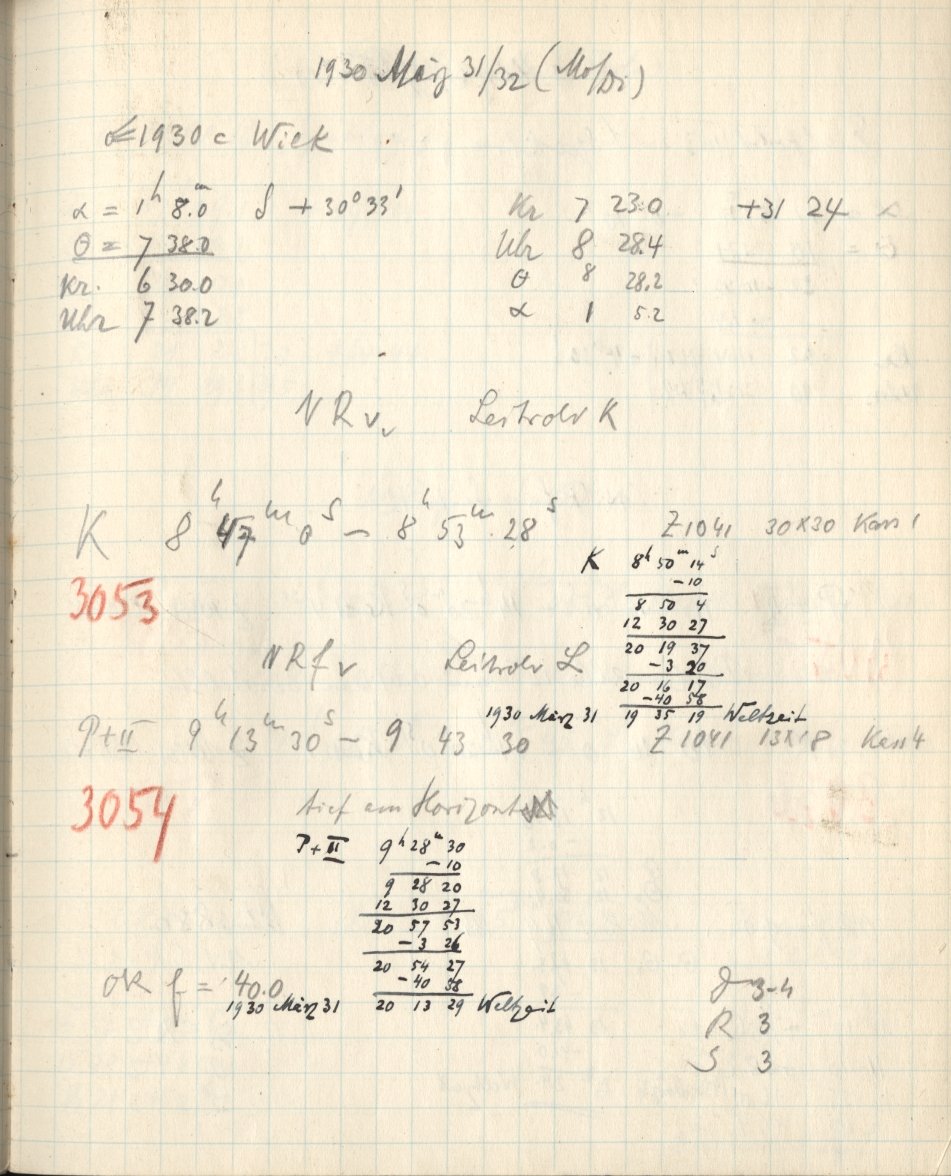 1930 März 31/32 (Mo/Di)
1930 c Wilk
α = 1ʰ 8.0ᵐ δ + 30° 33'
θ = 7 38.0
Kr. 6 30.0
Uhr 7 38.2
Kr 7 23.0 +31 24
Uhr 8 28.4
θ 8 28.2
α 1 5.2
NRVv Leitrohr K
K 8ʰ 47ᵐ 0ˢ – 8ʰ 53ᵐ 28ˢ Z 1041 30×30 Kass 1
3053
K 8ʰ 50ᵐ 14ˢ
– 10
8 50 4
12 30 27
20 19 37
– 3 20
20 16 17
– 40 58
1930 März 31 19 35 19 Weltzeit
NRfv Leitrohr L
P+II 9ʰ 13ᵐ 30ˢ – 9 43 30 Z 1041 13×18 Kass 4
3054
tief am Horizont
P+II 9ʰ 28ᵐ 30
– 10
9 28 20
12 30 27
20 57 53
– 3 26
20 54 27
– 40 58
1930 März 31 20 13 29 Weltzeit
OK f = 40.0
J 3-4
R 3
S 3